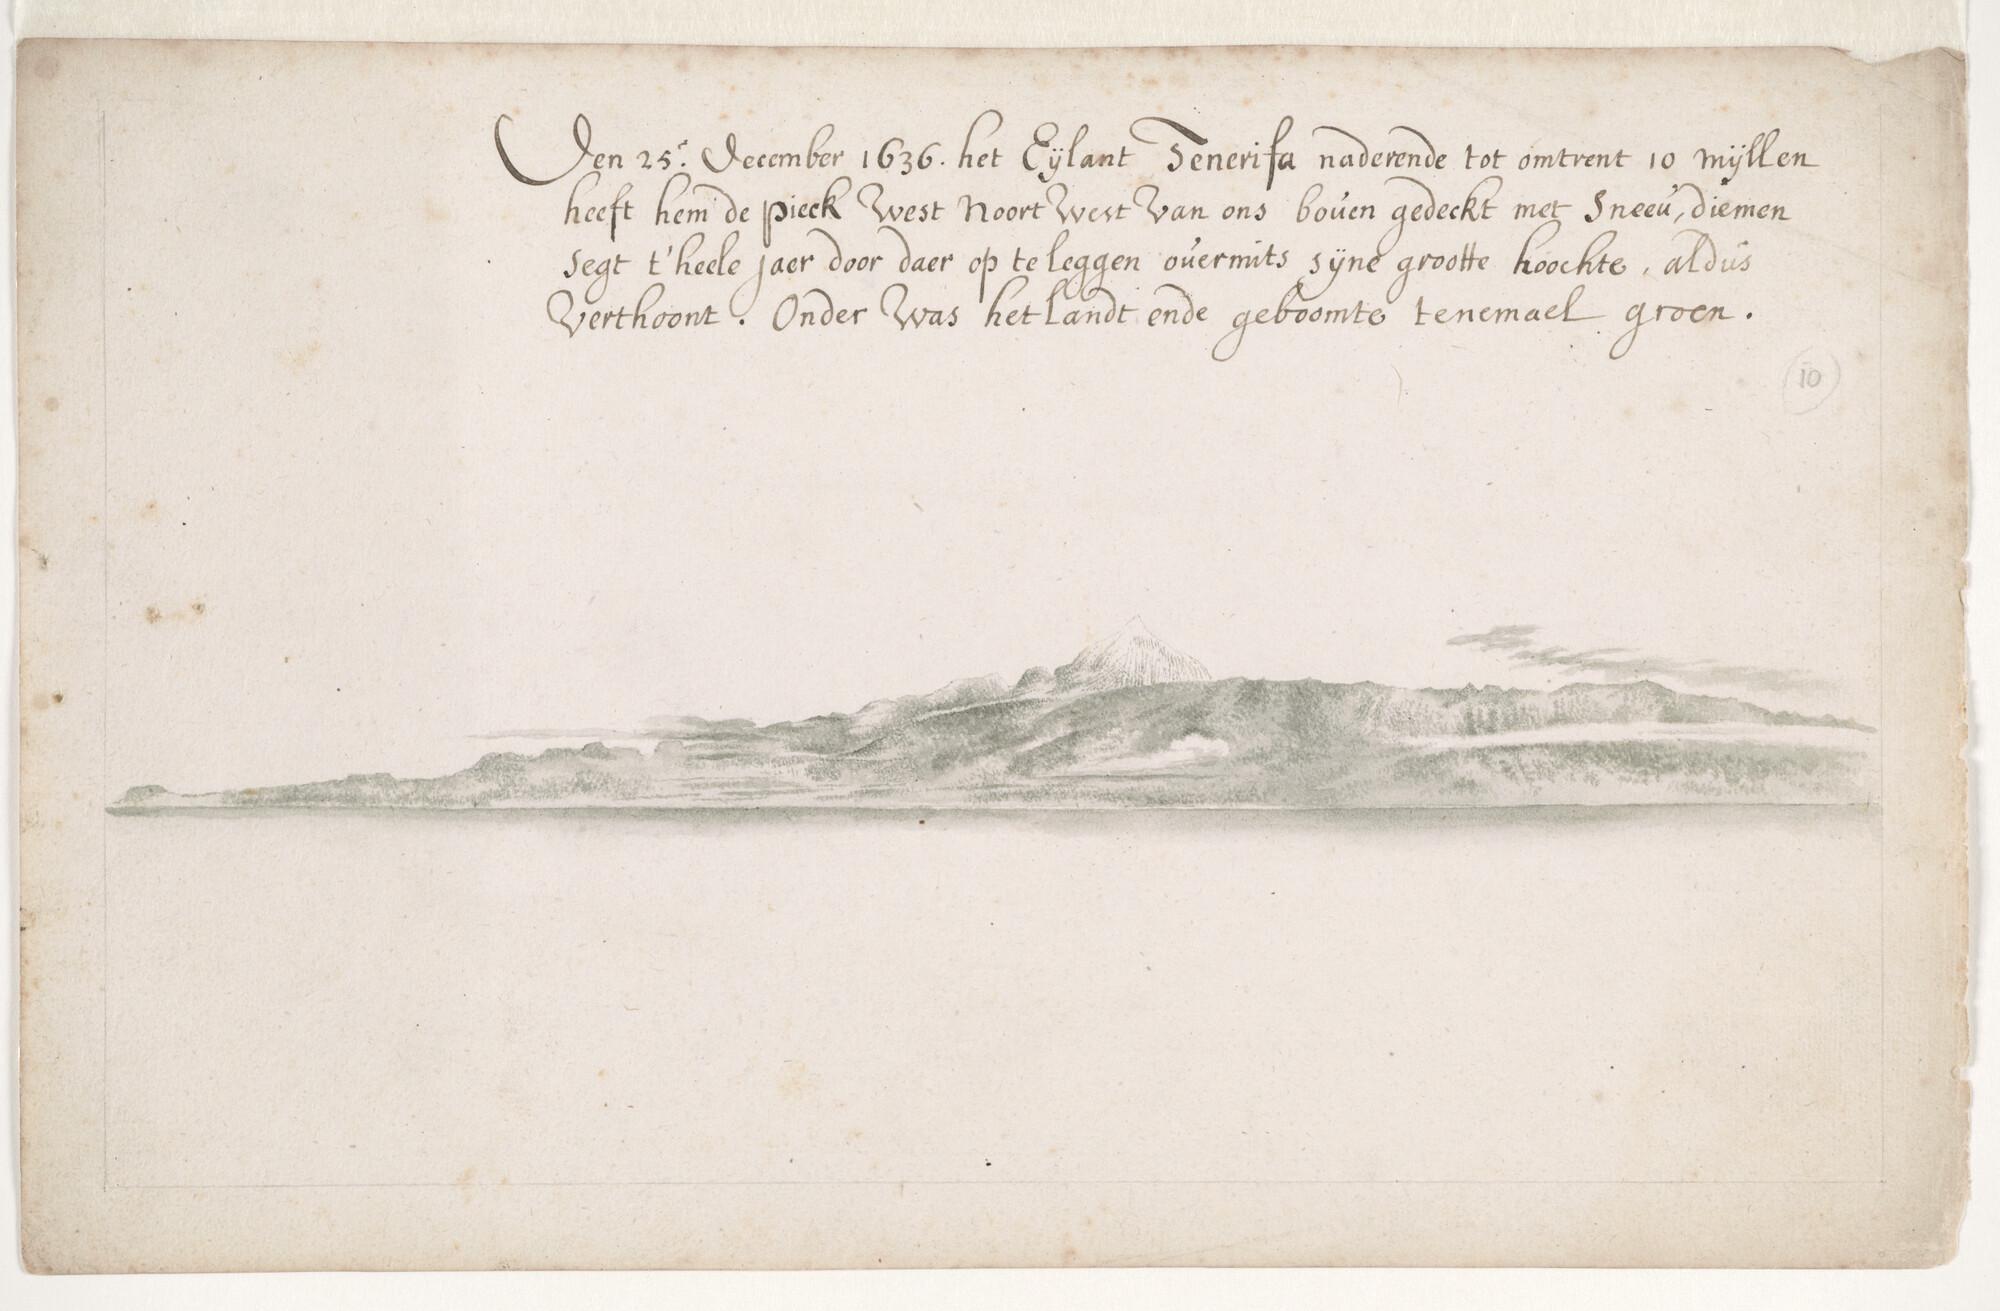 Den 25ᵉ. December 1636. het Eÿlant Tenerifa naderende tot omtrent 10 mÿllen
heeft hem de pieck West Noort West Van ons boúen gedeckt met Sneeú, diemen
Segt t'heele jaer door daer op te leggen oúermits sÿne grootte hoochte, aldús
Verthoont. Onder Was het landt ende geboomte tenemael groen.
10